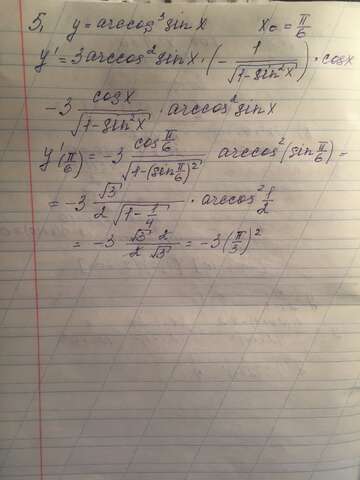 5, y = arccos³ sin x x₀ = π/6
y' = 3 arccos² sin x · (− 1/√(1−sin²x)) · cos x
−3 cos x/√(1−sin²x) · arccos² sin x
y'(π/6) = −3 cos π/6 / √(1−(sin π/6)²) arccos² (sin π/6) =
= −3 √3 / 2√(1−1/4) · arccos² 1/2
= −3 √3 · 2 / 2 √3 = −3 (π/3)²